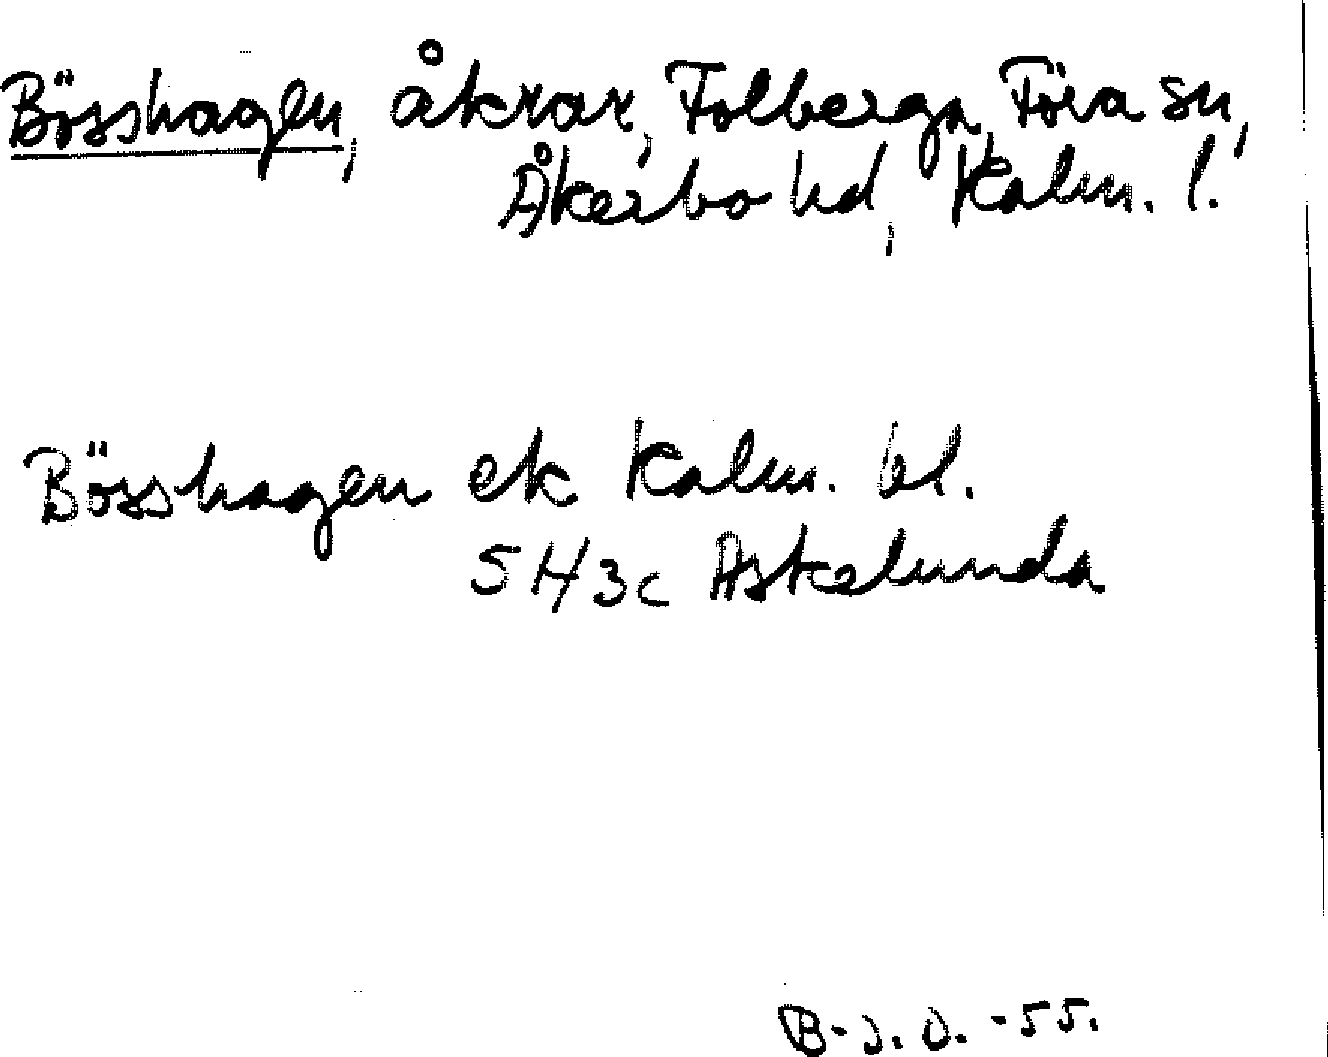 Bösshagen, åkrar, Folberga, Föra sn,
Åkerbo hd, Kalm. l.
Bösshagen ek Kalm. bl.
5 H 3c Askelunda
B-J.O. -55.